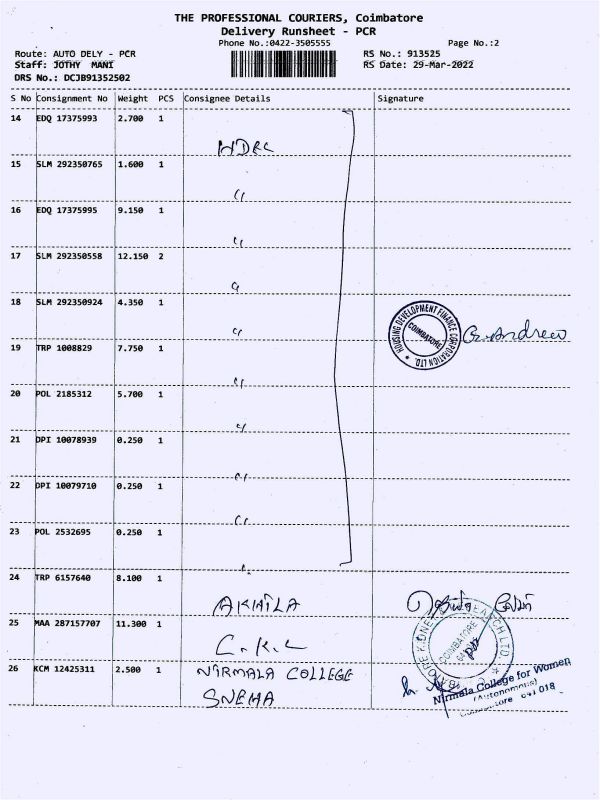 THE PROFESSIONAL COURIERS, Coimbatore
Delivery Runsheet - PCR
Phone No.:0422-3505555
Page No.:2
Route: AUTO DELY - PCR
RS No.: 913525
Staff: JOTHY MANI
RS Date: 29-Mar-2022
DRS No.: DCJB91352502
S No Consignment No Weight PCS Consignee Details Signature
14 EDQ 17375993 2.700 1
HDFC
15 SLM 292350765 1.600 1
〃
16 EDQ 17375995 9.150 1
〃
17 SLM 292350558 12.150 2
〃
18 SLM 292350924 4.350 1
〃
HOUSING DEVELOPMENT FINANCE CORPORATION LTD.
COIMBATORE
G. Andrew
19 TRP 1008829 7.750 1
〃
20 POL 2185312 5.700 1
〃
21 DPI 10078939 0.250 1
〃
22 DPI 10079710 0.250 1
〃
23 POL 2532695 0.250 1
24 TRP 6157640 8.100 1
AKHILA
25 MAA 287157707 11.300 1
COIMBATORE
26 KCM 12425311 2.500 1
NIRMALA COLLEGE
SNEHA
Nirmala College for Women
(Autonomous)
641 018